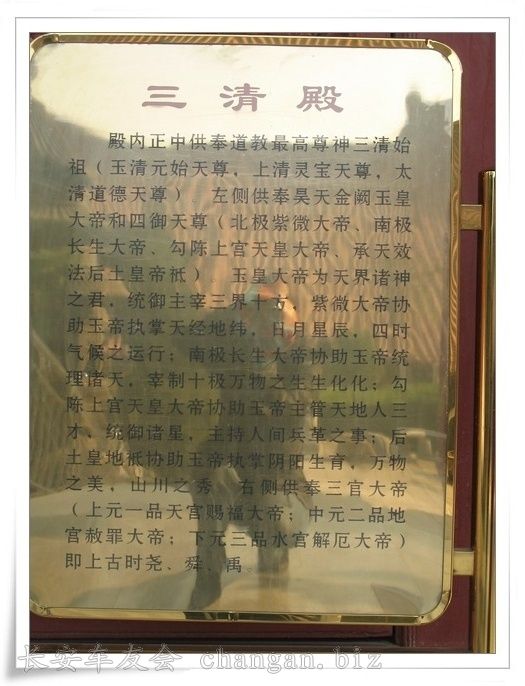 三清殿
殿内正中供奉道教最高尊神三清始
祖（玉清元始天尊，上清灵宝天尊，太
清道德天尊）。左侧供奉昊天金阙玉皇
大帝和四御天尊（北极紫微大帝、南极
长生大帝、勾陈上官天皇大帝、承天效
法后土皇帝祇）。玉皇大帝为天界诸神
之君，统御主宰三界十方；紫微大帝协
助玉帝执掌天经地纬，日月星辰，四时
气候之运行；南极长生大帝协助玉帝统
理诸天，宰制十极万物之生生化化；勾
陈上官天皇大帝协助玉帝主管天地人三
才、统御诸星，主持人间兵革之事；后
土皇地祇协助玉帝执掌阴阳生育，万物
之美，山川之秀。右侧供奉三官大帝
（上元一品天官赐福大帝；中元二品地
官赦罪大帝；下元三品水官解厄大帝）
即上古时尧、舜、禹。
长安车友会 changan.biz